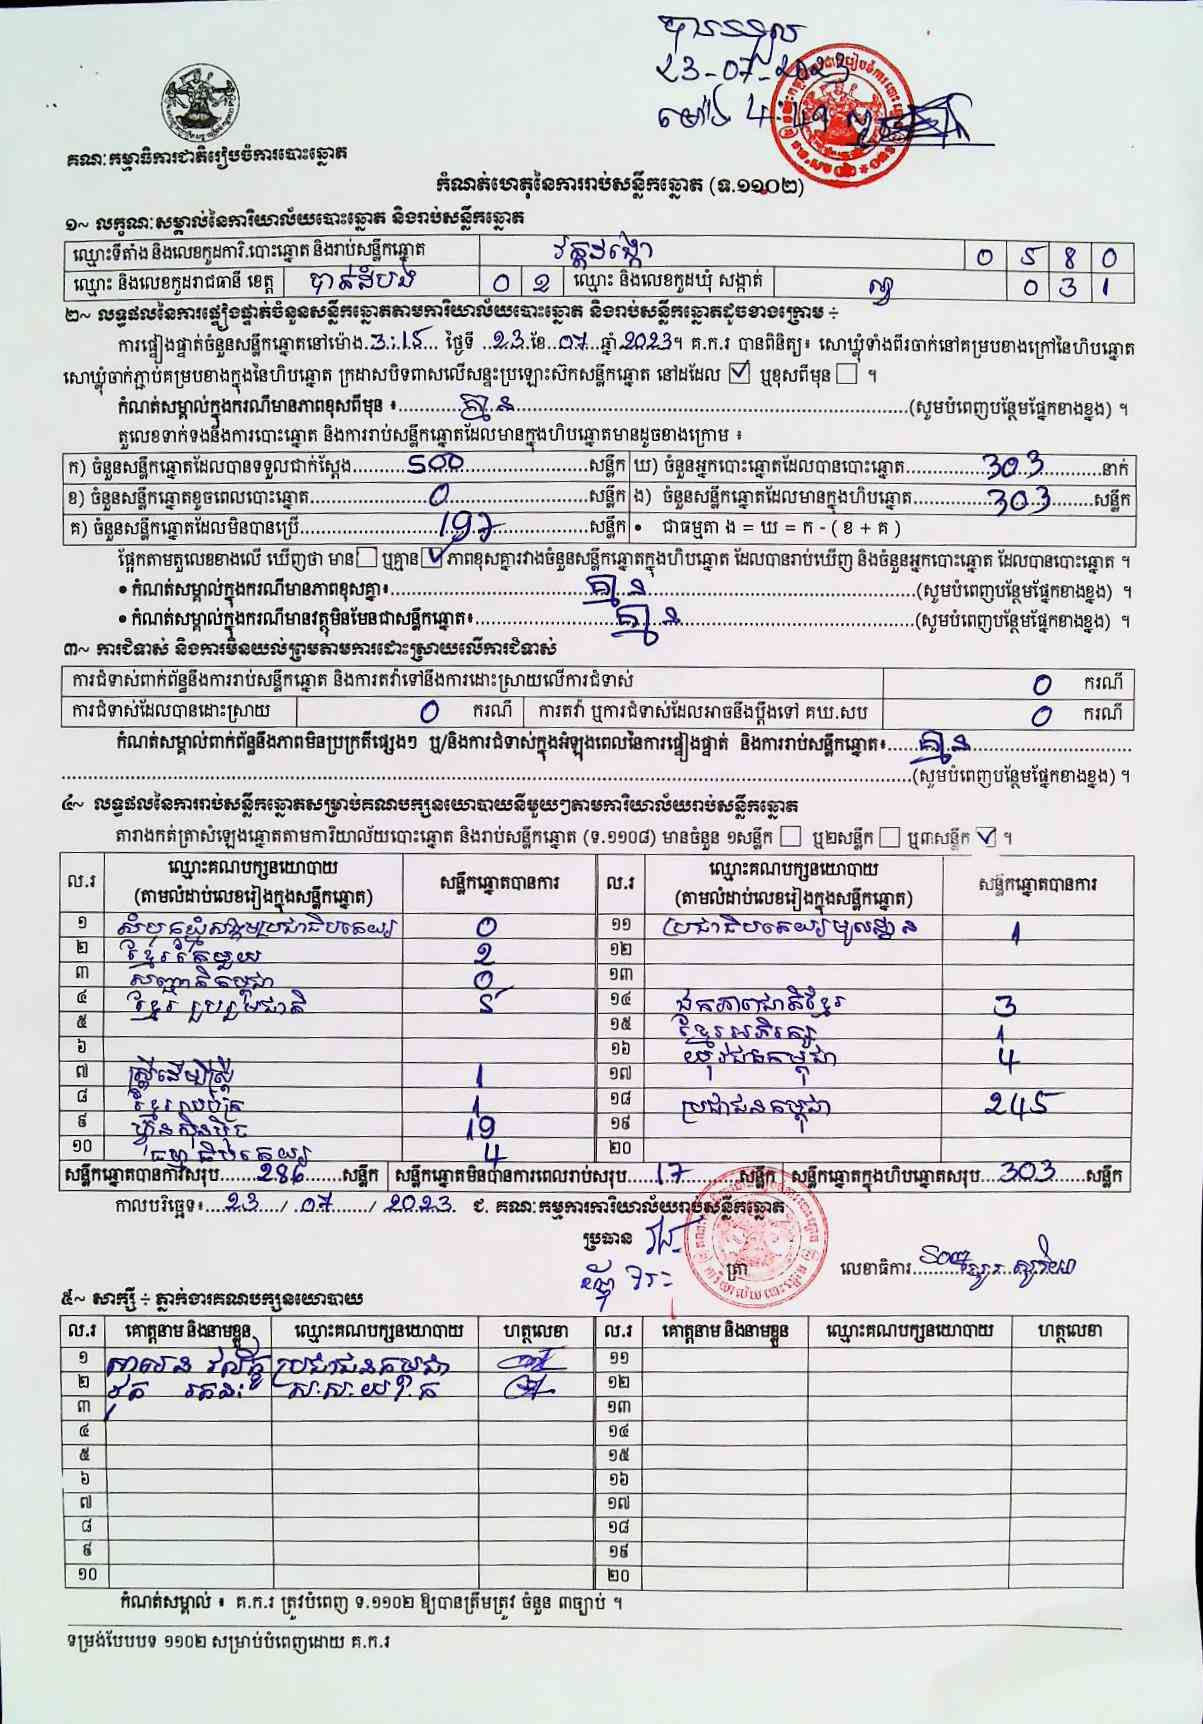 បានទទួល
23-07-2023
ម៉ោង 4:49
គណៈកម្មាធិការជាតិរៀបចំការបោះឆ្នោត
កំណត់ហេតុនៃការរាប់សន្លឹកឆ្នោត (ទ.១១០២)
១~ លក្ខណៈសម្គាល់នៃការិយាល័យបោះឆ្នោត និងរាប់សន្លឹកឆ្នោត
ឈ្មោះទីតាំង និងលេខកូដការិ.បោះឆ្នោត និងរាប់សន្លឹកឆ្នោត 0 5 8 0
ឈ្មោះ និងលេខកូដរាជធានី ខេត្ត បាត់ដំបង 0 2 ឈ្មោះ និងលេខកូដឃុំ សង្កាត់ 0 3 1
២~ លទ្ធផលនៃការផ្ទៀងផ្ទាត់ចំនួនសន្លឹកឆ្នោតតាមការិយាល័យបោះឆ្នោត និងរាប់សន្លឹកឆ្នោតដូចខាងក្រោម ÷
ការផ្ទៀងផ្ទាត់ចំនួនសន្លឹកឆ្នោតនៅម៉ោង 3:15 ថ្ងៃទី 23 ខែ 07 ឆ្នាំ 2023។ គ.ក.រ បានពិនិត្យ៖ សោឃ្លុំទាំងពីរចាក់នៅគម្របខាងក្រៅនៃហិបឆ្នោត
សោឃ្លុំចាក់ភ្ជាប់គម្របខាងក្នុងនៃហិបឆ្នោត ក្រដាសបិទពាសលើសន្ទះប្រឡោះស៊កសន្លឹកឆ្នោត នៅដដែល ☑ ឬខុសពីមុន ☐ ។
កំណត់សម្គាល់ក្នុងករណីមានភាពខុសពីមុន ៖ គ្មាន (សូមបំពេញបន្ថែមផ្នែកខាងខ្នង) ។
តួលេខទាក់ទងនឹងការបោះឆ្នោត និងការរាប់សន្លឹកឆ្នោតដែលមានក្នុងហិបឆ្នោតមានដូចខាងក្រោម ៖
ក) ចំនួនសន្លឹកឆ្នោតដែលបានទទួលជាក់ស្តែង 500 សន្លឹក ឃ) ចំនួនអ្នកបោះឆ្នោតដែលបានបោះឆ្នោត 303 នាក់
ខ) ចំនួនសន្លឹកឆ្នោតខូចពេលបោះឆ្នោត 0 សន្លឹក ង) ចំនួនសន្លឹកឆ្នោតដែលមានក្នុងហិបឆ្នោត 303 សន្លឹក
គ) ចំនួនសន្លឹកឆ្នោតដែលមិនបានប្រើ 197 សន្លឹក • ជាធម្មតា ង = ឃ = ក - ( ខ + គ )
ផ្អែកតាមតួលេខខាងលើ ឃើញថា មាន ☐ ឬគ្មាន ☑ ភាពខុសគ្នារវាងចំនួនសន្លឹកឆ្នោតក្នុងហិបឆ្នោត ដែលបានរាប់ឃើញ និងចំនួនអ្នកបោះឆ្នោត ដែលបានបោះឆ្នោត ។
• កំណត់សម្គាល់ក្នុងករណីមានភាពខុសគ្នា៖ គ្មាន (សូមបំពេញបន្ថែមផ្នែកខាងខ្នង) ។
• កំណត់សម្គាល់ក្នុងករណីមានវត្ថុមិនមែនជាសន្លឹកឆ្នោត៖ គ្មាន (សូមបំពេញបន្ថែមផ្នែកខាងខ្នង) ។
៣~ ការជំទាស់ និងការមិនយល់ព្រមតាមការដោះស្រាយលើការជំទាស់
ការជំទាស់ពាក់ព័ន្ធនឹងការរាប់សន្លឹកឆ្នោត និងការតវ៉ាទៅនឹងការដោះស្រាយលើការជំទាស់ 0 ករណី
ការជំទាស់ដែលបានដោះស្រាយ 0 ករណី ការតវ៉ា ឬការជំទាស់ដែលអាចនឹងប្តឹងទៅ គឃ.សប 0 ករណី
កំណត់សម្គាល់ពាក់ព័ន្ធនឹងភាពមិនប្រក្រតីផ្សេងៗ ឬ/និងការជំទាស់ក្នុងអំឡុងពេលនៃការផ្ទៀងផ្ទាត់ និងការរាប់សន្លឹកឆ្នោត៖ គ្មាន
(សូមបំពេញបន្ថែមផ្នែកខាងខ្នង) ។
៤~ លទ្ធផលនៃការរាប់សន្លឹកឆ្នោតសម្រាប់គណបក្សនយោបាយនីមួយៗតាមការិយាល័យរាប់សន្លឹកឆ្នោត
តារាងកត់ត្រាសំឡេងឆ្នោតតាមការិយាល័យបោះឆ្នោត និងរាប់សន្លឹកឆ្នោត (ទ.១១០៨) មានចំនួន ១សន្លឹក ☐ ឬ២សន្លឹក ☐ ឬ៣សន្លឹក ☑ ។
ល.រ ឈ្មោះគណបក្សនយោបាយ សន្លឹកឆ្នោតបានការ ល.រ ឈ្មោះគណបក្សនយោបាយ សន្លឹកឆ្នោតបានការ
(តាមលំដាប់លេខរៀងក្នុងសន្លឹកឆ្នោត) (តាមលំដាប់លេខរៀងក្នុងសន្លឹកឆ្នោត)
១ សំបុកឃ្មុំសង្គមប្រជាធិបតេយ្យ 0 ១១ ប្រជាធិបតេយ្យមូលដ្ឋាន 1
២ ខ្មែរតែមួយ 2 ១២
៣ សញ្ជាតិកម្ពុជា 0 ១៣
៤ ខ្មែររួបរួមជាតិ 5 ១៤ ឯកភាពជាតិខ្មែរ 3
៥ ១៥ ខ្មែរអភិរក្ស 1
៦ ១៦ យុវជនកម្ពុជា 4
៧ ស្ត្រីដើម្បីស្ត្រី 1 ១៧
៨ 1 ១៨ ប្រជាជនកម្ពុជា 245
៩ ហ្វ៊ុនស៊ិនប៉ិច 19 ១៩
១០ ធម្មាធិបតេយ្យ 4 ២០
សន្លឹកឆ្នោតបានការសរុប 286 សន្លឹក សន្លឹកឆ្នោតមិនបានការពេលរាប់សរុប 17 សន្លឹក សន្លឹកឆ្នោតក្នុងហិបឆ្នោតសរុប 303 សន្លឹក
កាលបរិច្ឆេទ៖ 23 / 07 / 2023. ជ. គណៈកម្មការការិយាល័យរាប់សន្លឹកឆ្នោត
ប្រធាន ត្រា លេខាធិការ
៥~ សាក្សី ÷ ភ្នាក់ងារគណបក្សនយោបាយ
ល.រ គោត្តនាម និងនាមខ្លួន ឈ្មោះគណបក្សនយោបាយ ហត្ថលេខា ល.រ គោត្តនាម និងនាមខ្លួន ឈ្មោះគណបក្សនយោបាយ ហត្ថលេខា
១ ប្រជាជនកម្ពុជា ១១
២ ស.ស.យ.ក ១២
៣ ១៣
៤ ១៤
៥ ១៥
៦ ១៦
៧ ១៧
៨ ១៨
៩ ១៩
១០ ២០
កំណត់សម្គាល់ ៖ គ.ក.រ ត្រូវបំពេញ ទ.១១០២ ឱ្យបានត្រឹមត្រូវ ចំនួន ៣ច្បាប់ ។
ទម្រង់បែបបទ ១១០២ សម្រាប់បំពេញដោយ គ.ក.រ